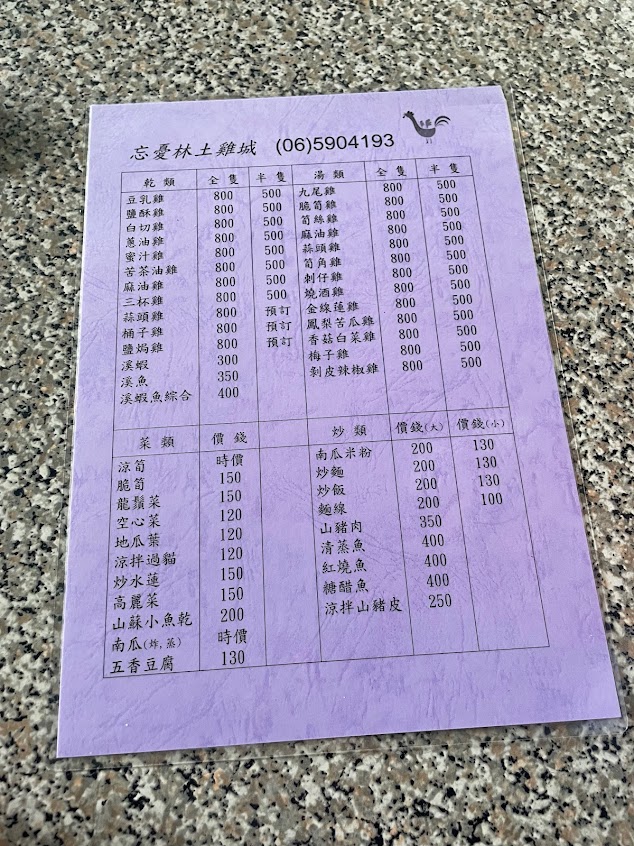 忘憂林土雞城 (06)5904193
乾類 全隻 半隻 湯類 全隻 半隻
豆乳雞 800 500 九尾雞 800 500
鹽酥雞 800 500 脆筍雞 800 500
白切雞 800 500 筍絲雞 800 500
蔥油雞 800 500 麻油雞 800 500
蜜汁雞 800 500 蒜頭雞 800 500
苦茶油雞 800 500 筍角雞 800 500
麻油雞 800 500 刺仔雞 800 500
三杯雞 800 500 燒酒雞 800 500
蒜頭雞 800 預訂 金線蓮雞 800 500
桶子雞 800 預訂 鳳梨苦瓜雞 800 500
鹽焗雞 800 預訂 香菇白菜雞 800 500
溪蝦 300 梅子雞 800 500
溪魚 350 剝皮辣椒雞 800 500
溪蝦魚綜合 400
菜類 價錢 炒類 價錢(大) 價錢(小)
涼筍 時價 南瓜米粉 200 130
脆筍 150 炒麵 200 130
龍鬚菜 150 炒飯 200 130
空心菜 120 麵線 200 100
地瓜葉 120 山豬肉 350
涼拌過貓 120 清蒸魚 400
炒水蓮 150 紅燒魚 400
高麗菜 150 糖醋魚 400
山蘇小魚乾 200 涼拌山豬皮 250
南瓜(炸,蒸) 時價
五香豆腐 130